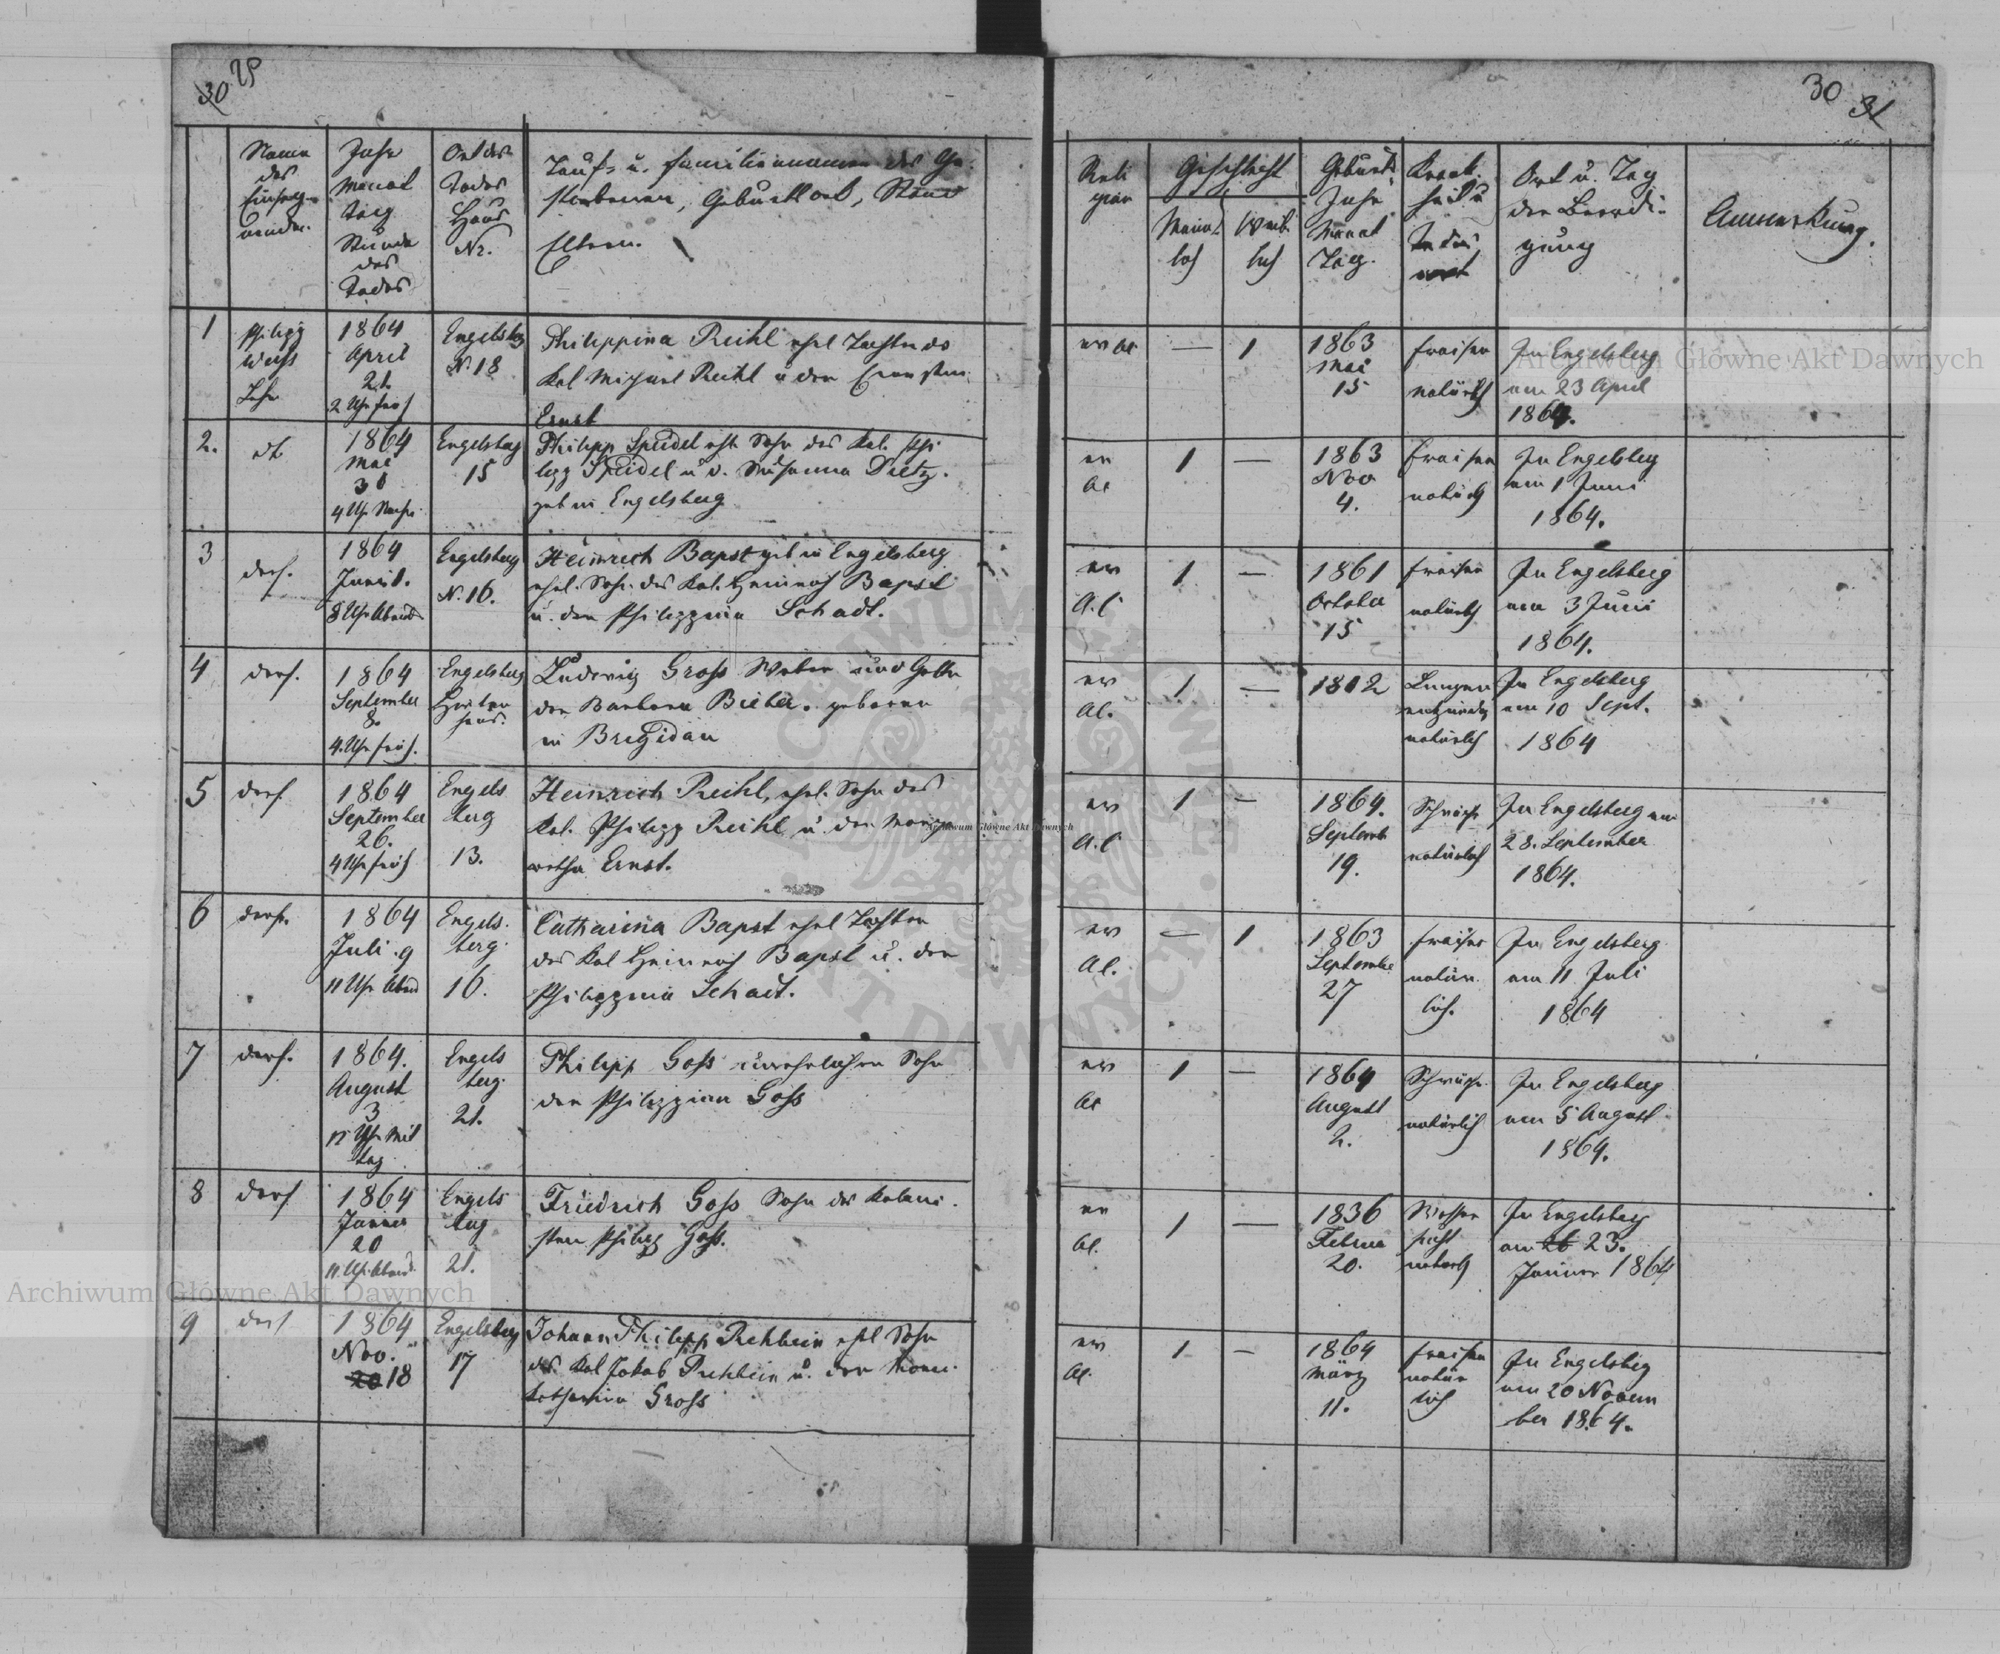 30 29
Name
des
Einsegn-
enden.
Jahr
Monat
Tag
Stunde
des
Todes
Ort des
Todes
Haus
Nr.
Tauf- u. Familiennamen des Ge-
storbenen, Geburtsort, Stand
Eltern.
1
Philipp
Weiss
Lehr
1864
April
21.
2 Uhr früh
Engelsberg
N. 18
Philippina Reihl ehel Tochter des
Kol Michael Reihl u der
Ernst
2.
dt
1864
Mai
30
4 Uhr Nachm
Engelsberg
15
Philipp Speidel ehl. Sohn des Kol. Phi
lipp Speidel u d. Susanna Dietz.
geb in Engelsberg
3
ders.
1864
Juni 1.
8 Uhr Abends
Engelsberg
N. 16.
Heinrich Bapst geb in Engelsberg
ehel. Sohn des Kol. Heinrich Bapst
u. der Philippina Schadt.
4
ders.
1864
September
8.
4. Uhr früh.
Engelsberg
Hirten
haus.
Ludwig Gross Weber und Gatte
der Barbara Bieber. geboren
in Brigidau
5
ders
1864
September
26.
4 Uhr früh
Engels
berg
13.
Heinrich Reihl, ehel. Sohn des
Kol. Philipp Reihl u. der Marga
retha Ernst.
6
ders.
1864
Juli 9
11 Uhr Abend
Engels.
berg.
16.
Catharina Bapst ehel Tochter
des Kol Heinrich Bapst u. der
Philippina Schadt.
7
ders.
1864.
August
3
12 Uhr Mit
tag
Engels
berg.
21.
Philipp Goss unehelicher Sohn
der Philippina Goss
8
ders
1864
Jänner
20
11. Uhr Abend
Engels
berg
21.
Friedrich Goss Sohn des Koloni.
sten Philipp Goss.
9
ders
1864
Nov.
20 18
Engelsberg
17
Johann Philipp Rehbein ehl Sohn
des Kol Jakob Rehbein u. der
Katharina Gross
30 31
Reli
gion
Geschlecht
Männ
lich
Weib
lich
Geburts
Jahr
Monat
Tag.
Krank.
heit u
Todes
art
Ort u. Tag
der Beerdi-
gung
Anmerkung.
ev AC
—
1
1863
Mai
15
Fraisen
natürlich
In Engelsberg
am 23 April
1864.
ev
AC
1
—
1863
Nov
4.
Fraisen
natürlich
In Engelsberg
am 1 Juni
1864.
ev
A.C
1
—
1861
October
15
Fraisen
natürlich
In Engelsberg
am 3 Juni
1864.
ev
AC.
1
—
1802
Lungen
entzündg
natürlich
In Engelsberg
am 10 Sept.
1864
ev
A.C
1
—
1864.
Septemb
19.
Schwäche
natürlich
In Engelsberg am
28. September
1864.
ev
AC.
—
1
1863
September
27
Fraisen
natür.
lich.
In Engelsberg
am 11 Juli
1864
ev
AC
1
—
1864
August
2.
Schwäche.
natürlich
In Engelsberg
am 5 August
1864.
ev
AC.
1
—
1836
Februar
20.
Wasser
sucht
natürlich
In Engelsberg
am 26 23.
Jänner 1864
ev
AC.
1
—
1864
März
11.
Fraisen
natür
lich
In Engelsberg
am 20 Novem
ber 1864.
Archiwum Główne Akt Dawnych
Archiwum Główne Akt Dawnych
Archiwum Główne Akt Dawnych
ARCHIWUM GŁÓWNE AKT DAWNYCH